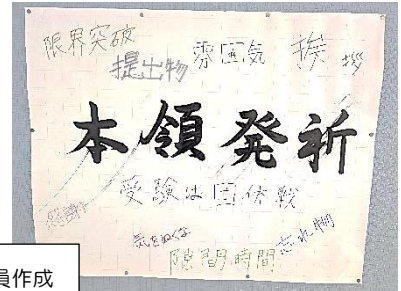 限界突破
提出物
雰囲気
挨拶
本領発祈
受験は団体戦
気をぬくな
隙間時間
忘れ物
員作成